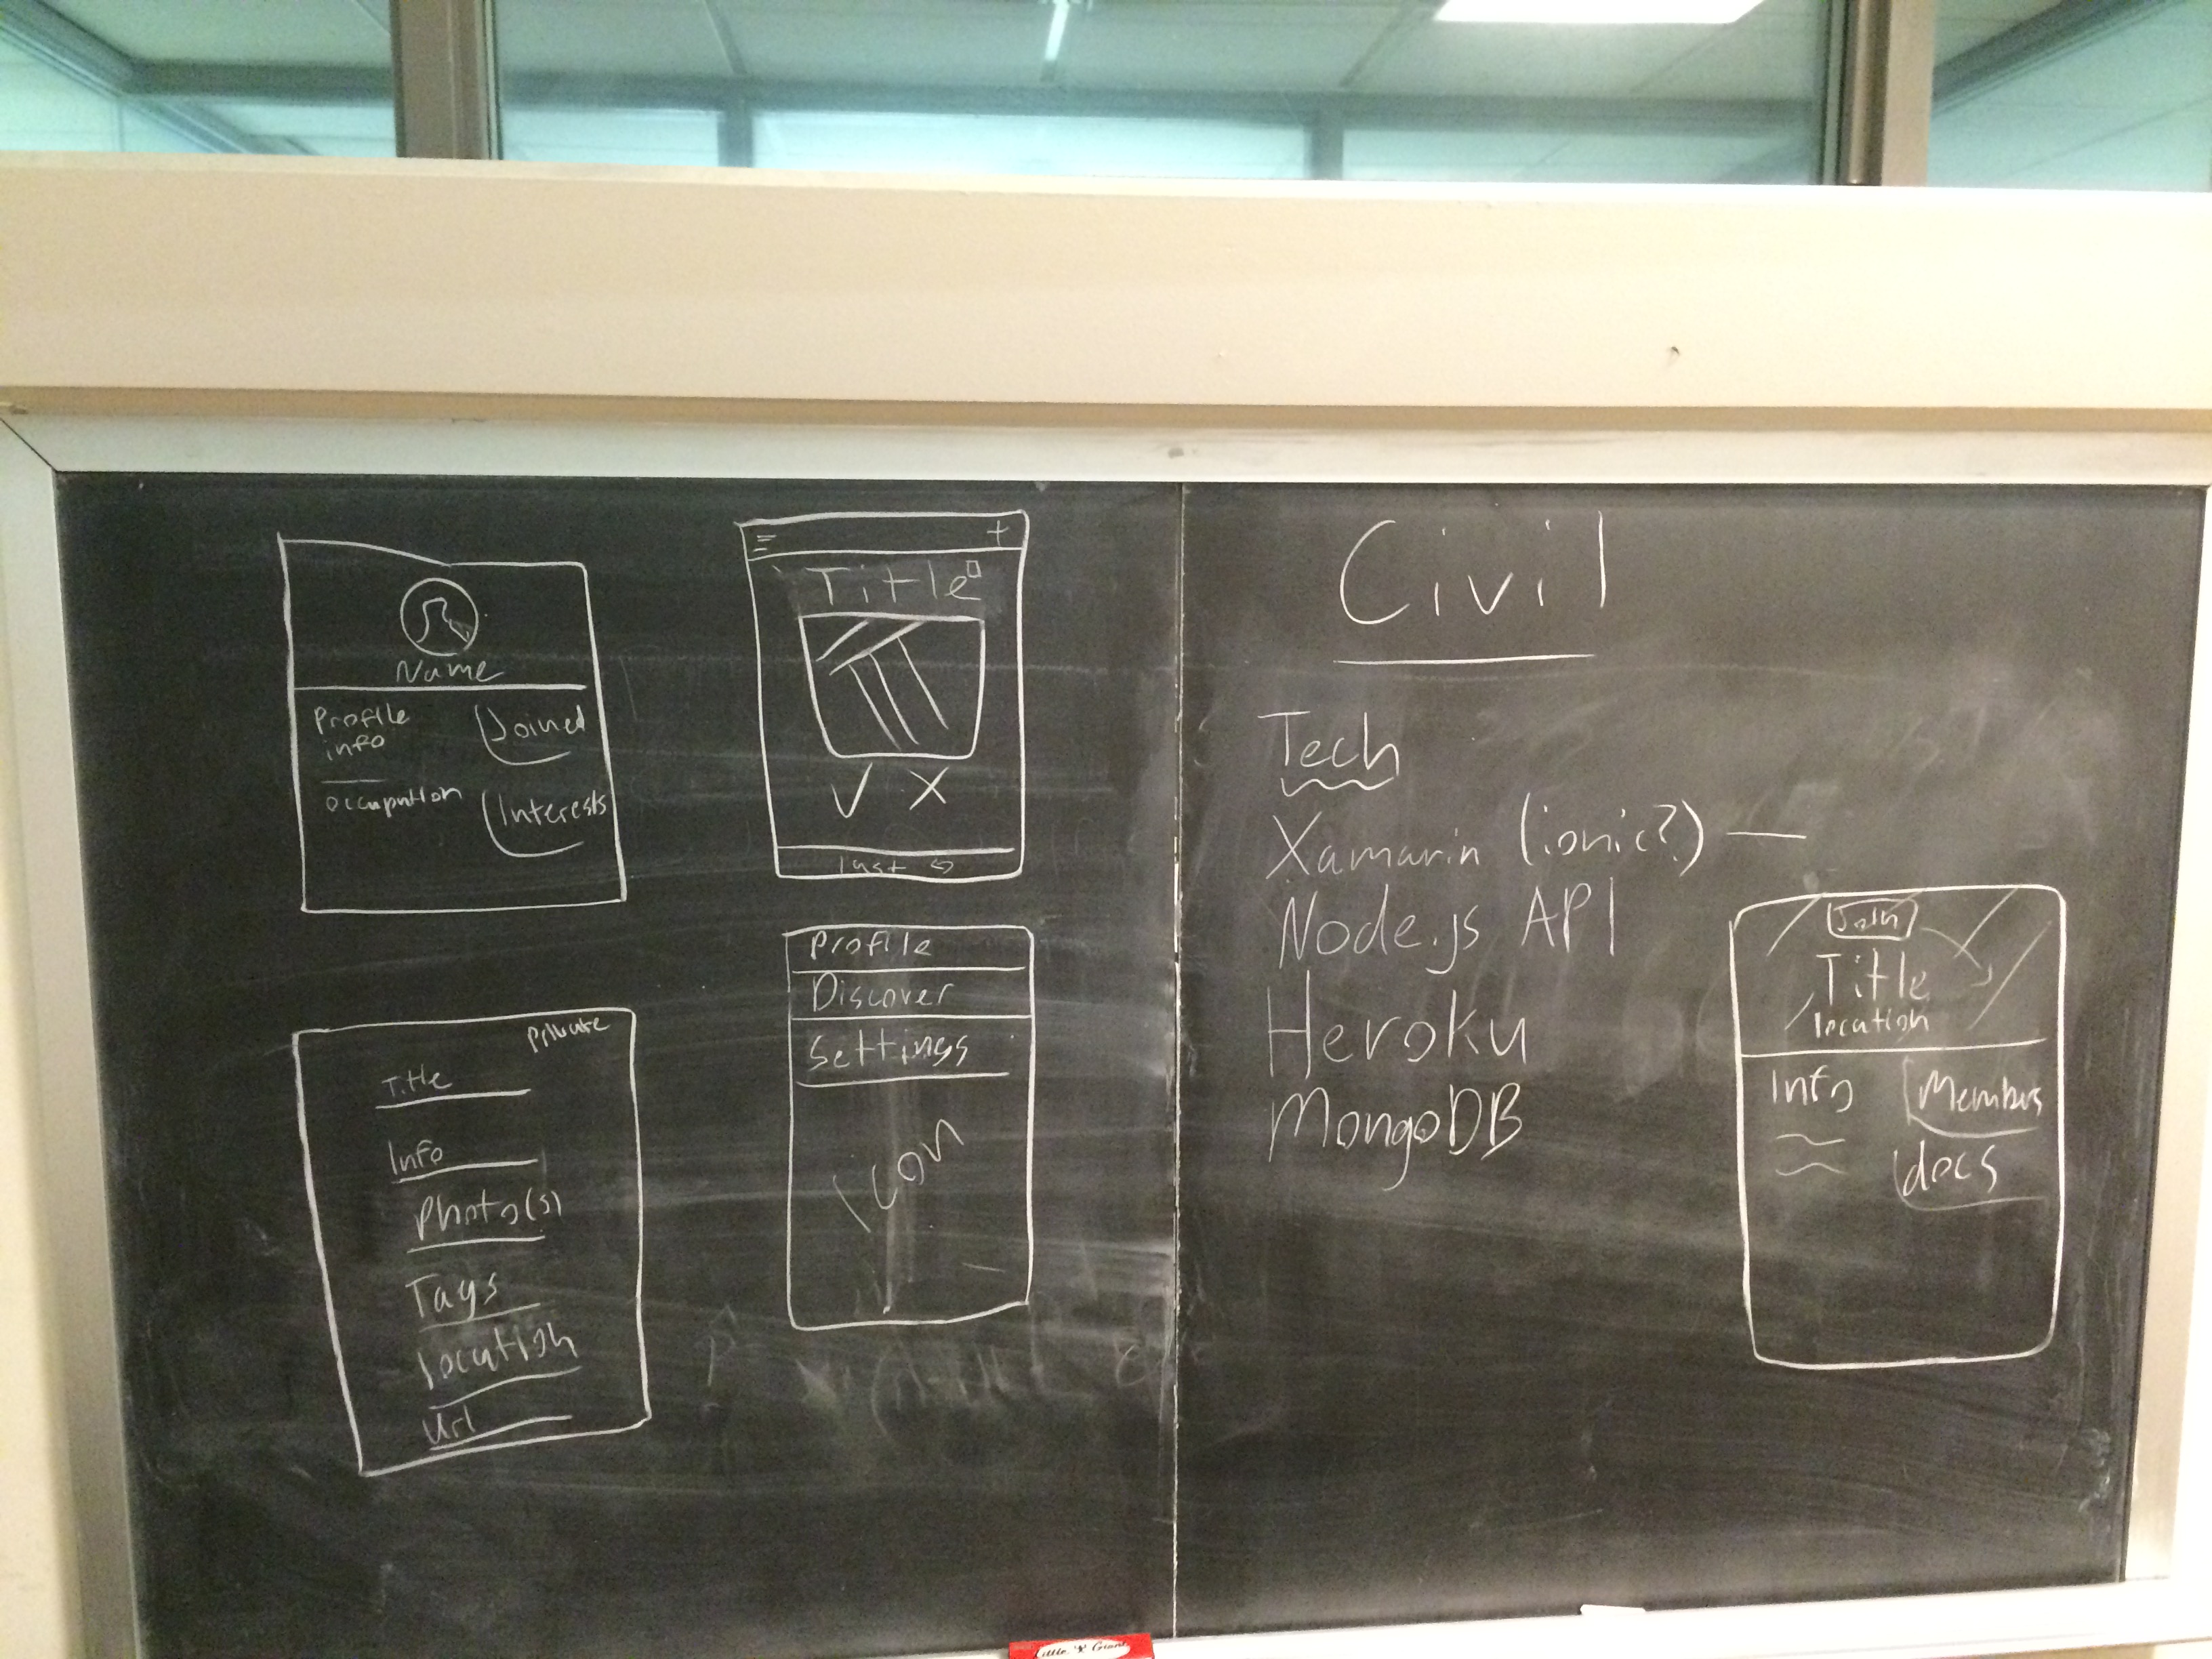 Name
Profile
info
Joined
occupation
Interests
+
Title
✓ X
last
Private
Title
Info
Photo(s)
Tags
location
Url
Profile
Discover
Settings
Icon
Civil
Tech
Xamarin (ionic?) —
Node.js API
Heroku
MongoDB
Join
Title
location
Info
Members
docs
Little Giant